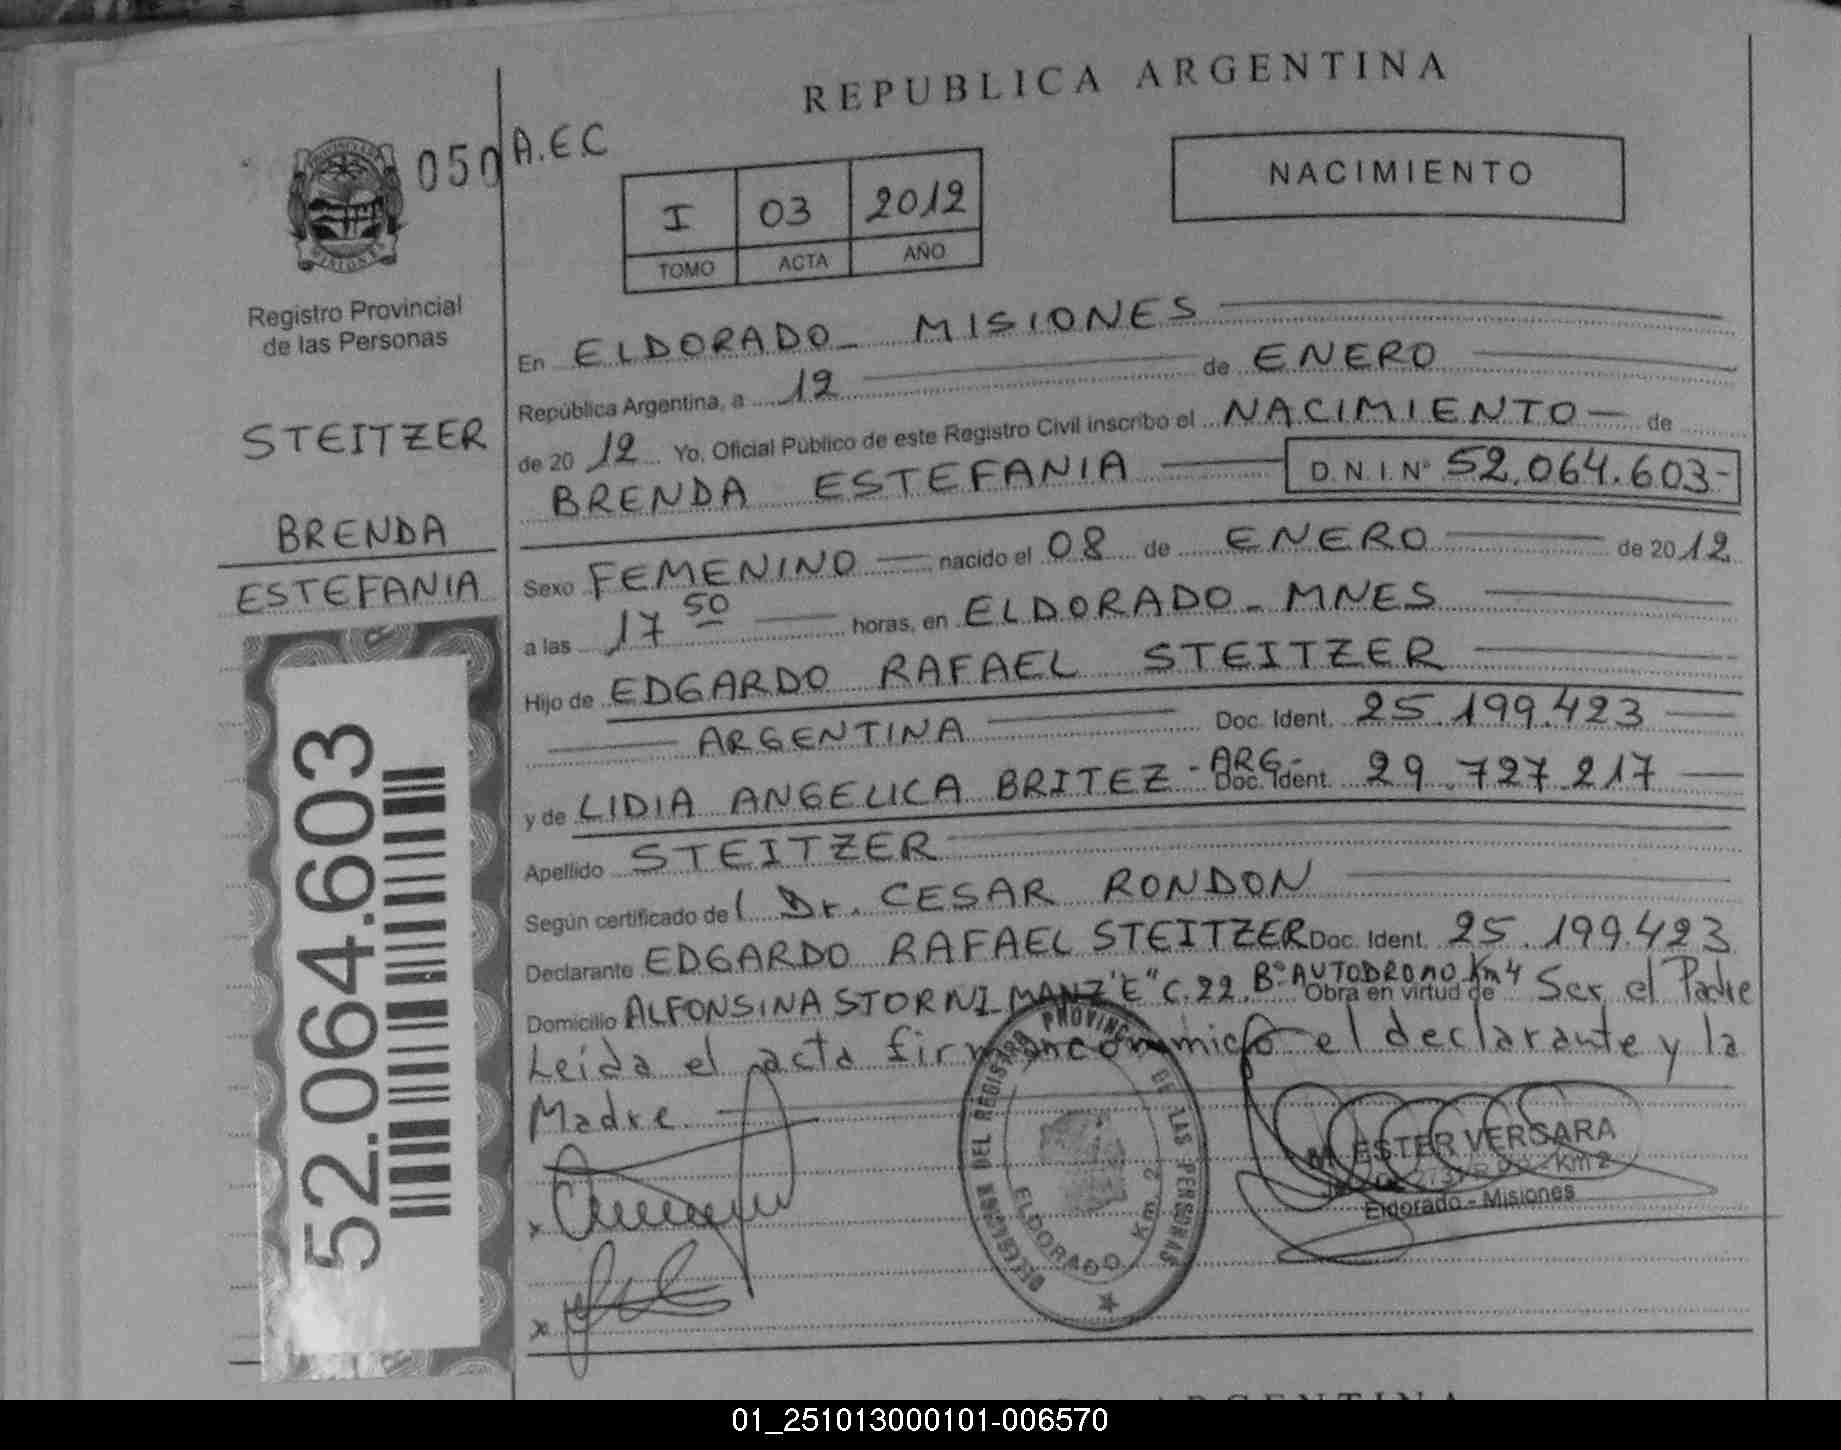 REPUBLICA ARGENTINA
050 A.E.C
NACIMIENTO
I 03 2012
TOMO ACTA AÑO
MISIONES
Registro Provincial
de las Personas
STEITZER
BRENDA
ESTEFANIA
52.064.603
En ELDORADO_ MISIONES
República Argentina, a 12 de ENERO
de 20 12 Yo, Oficial Público de este Registro Civil inscribo el NACIMIENTO de
BRENDA ESTEFANIA D.N.I.Nº 52.064.603-
Sexo FEMENINO nacido el 08 de ENERO de 2012
a las 17 50 horas, en ELDORADO_ MNES
Hijo de EDGARDO RAFAEL STEITZER
ARGENTINA Doc. Ident. 25.199.423
y de LIDIA ANGELICA BRITEZ - ARG- Doc. Ident. 29.727.217
Apellido STEITZER
Según certificado del Dr. CESAR RONDON
Declarante EDGARDO RAFAEL STEITZER Doc. Ident. 25.199.423
Domicilio ALFONSINA STORNI MANZ "E" C.22, Bº AUTODROMO Km4 Obra en virtud de Ser el Padre
Leída el acta firman conmigo el declarante y la
Madre.
DEL REGISTRO PROVINCIAL DE LAS PERSONAS
ELDORADO Km. 2
M. ESTER VERGARA
Km 2
Eldorado - Misiones
x
x
ARGENTINA
01_251013000101-006570